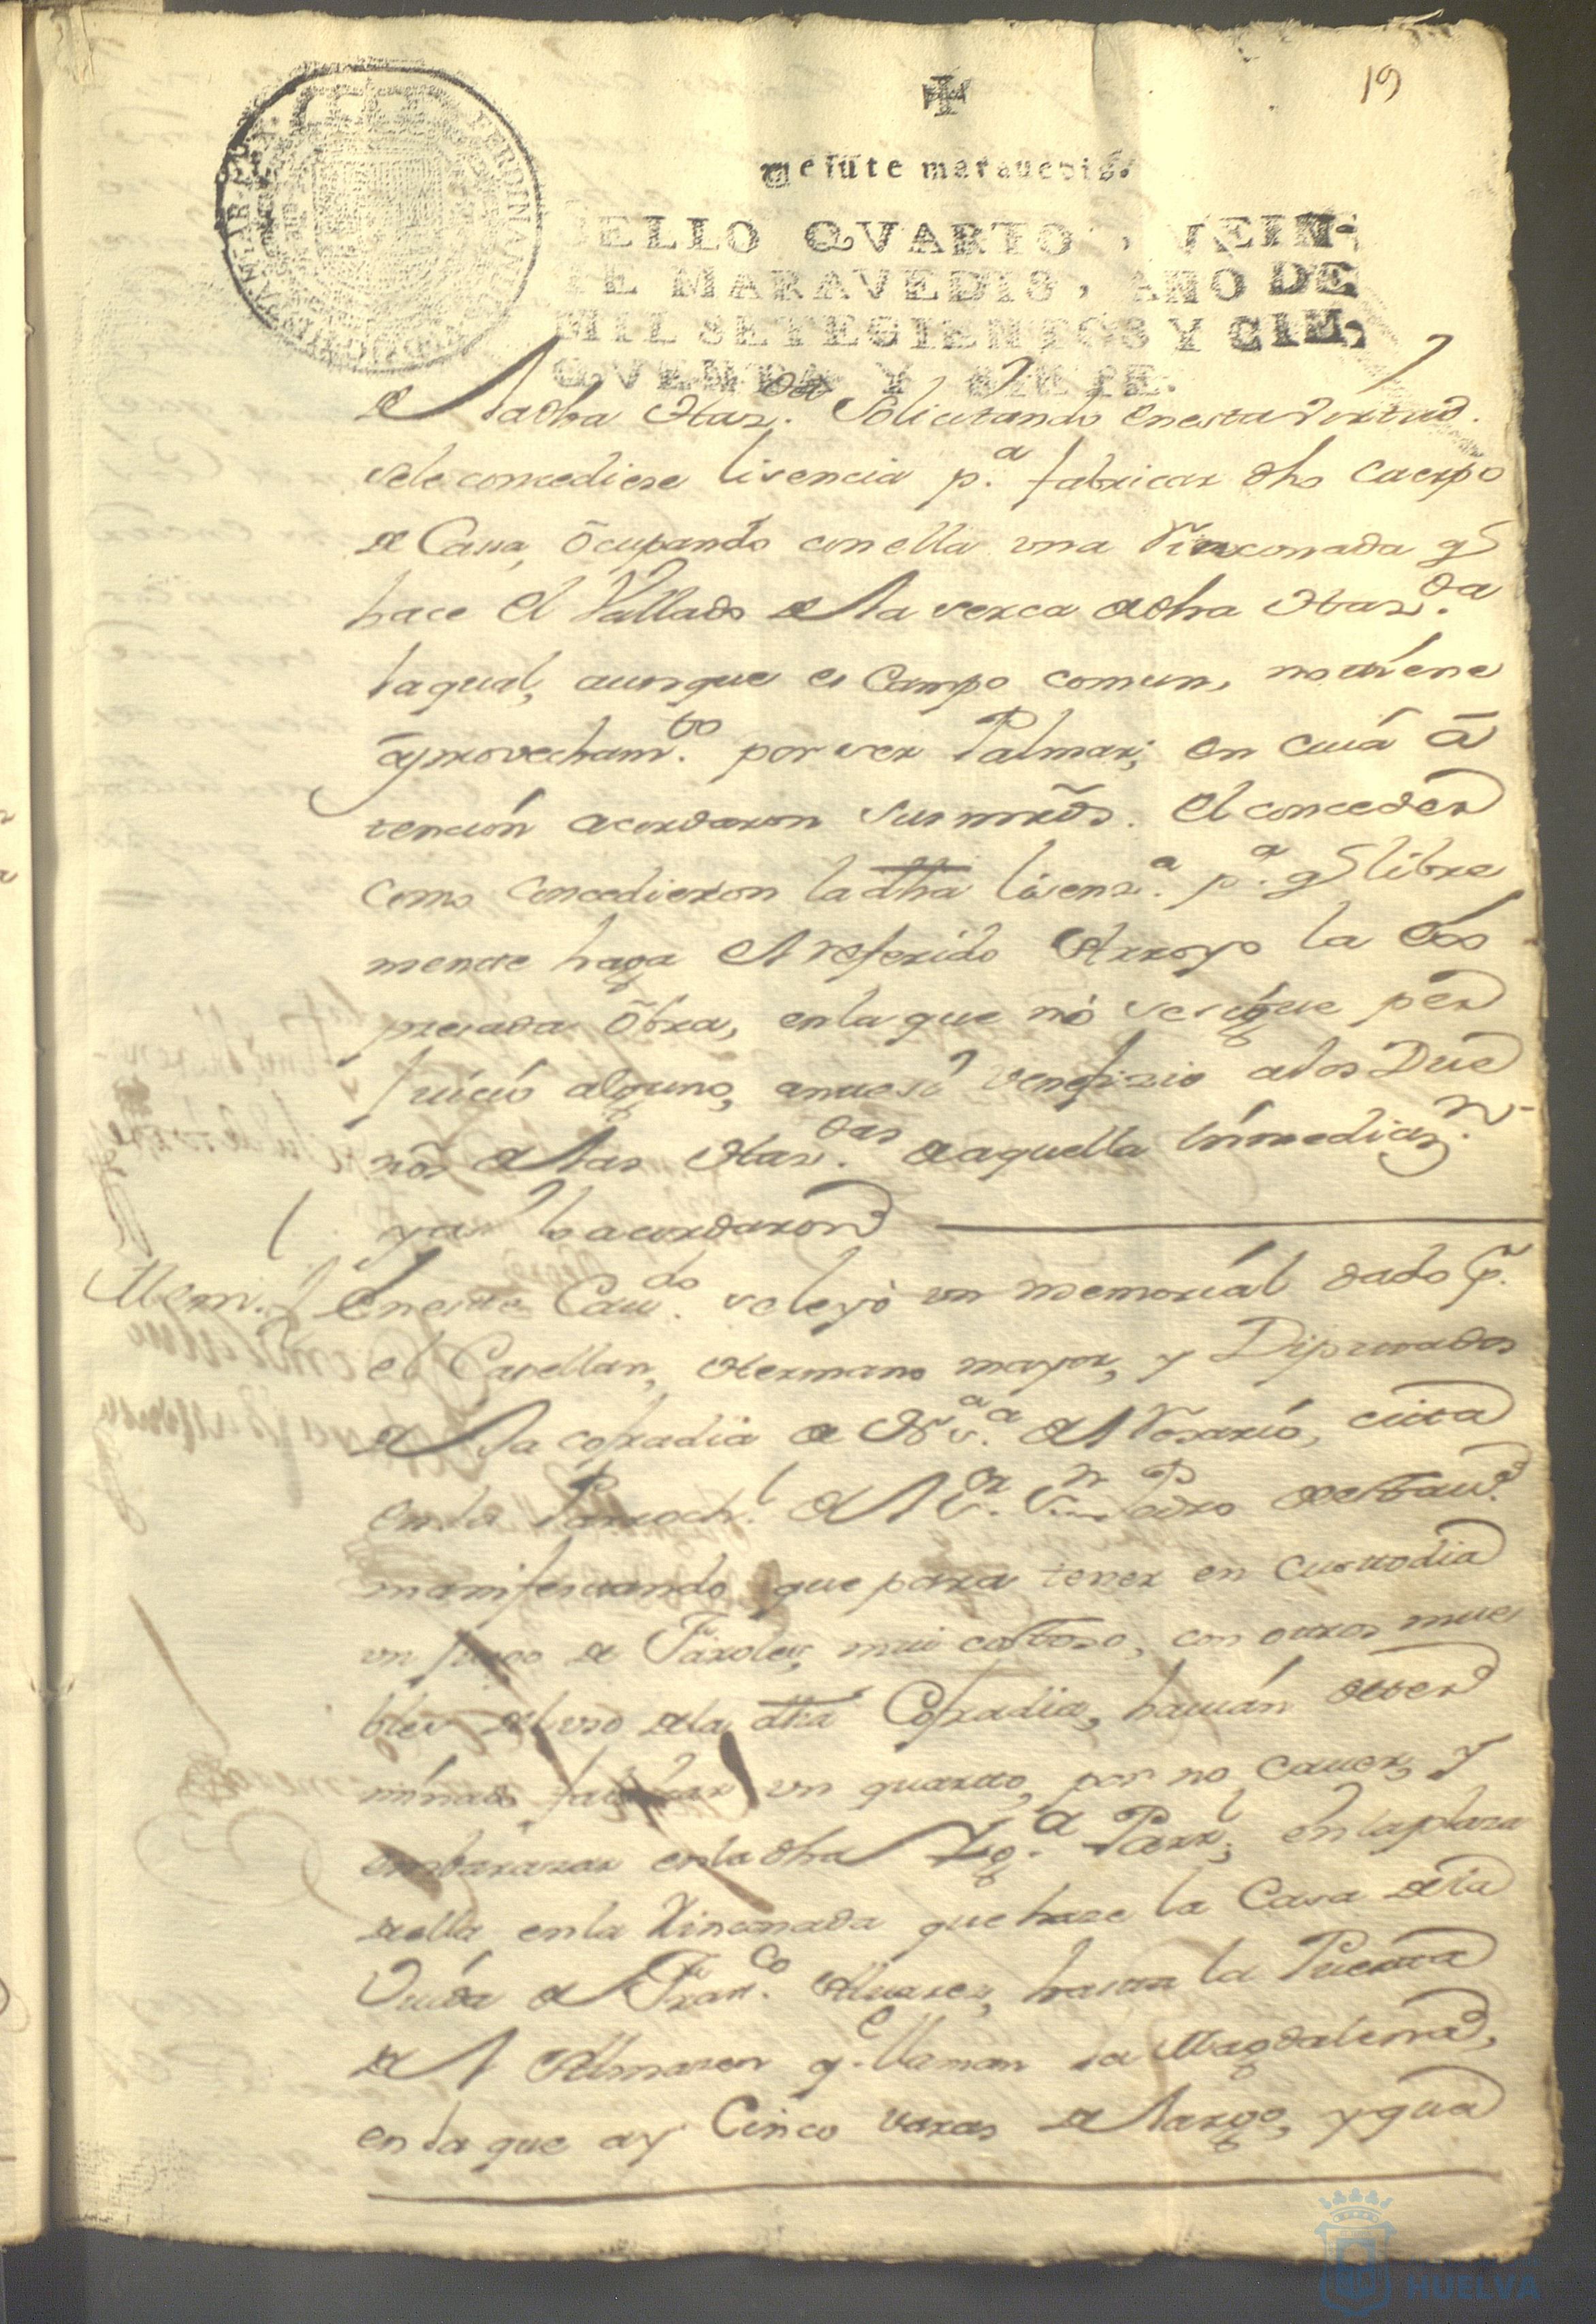 19
Veinte maravedis.
SELLO QVARTO, VEIN-
TE MARAVEDIS, AÑO DE
MIL SETECIENTOS Y CIN-
QVENTA Y SIETE.
de la dha Haz.da Solicitando en esta virtud
se le concediese lisencia p.a fabricar dho Cuerpo
de Casa, ocupando con ella vna Rinconada q
hace el Vallado de la serca de dha Haz.da
la qual, aunque es Campo comun, no tiene
aprovecham.to por ser Palmar; en cuia a
tencion acordaron sus mrds. el conceder
como concedieron la dha lisens.a p.a q libre
mente haga el referido Arroyo la es
presada obra, en la que no se sigue per
juicio alguno, antes si venefizio a los Due
nos de las Haz.das de aquella inmediaz.n
y asi lo acordaron
Mem.l En este Cau.do se leyò un memorial dado p.
el Capellan, Hermano mayor, y Diputados
de la cofradia de N.a S.a del Rosario, cita
en la Parroch.l del S.r S.n Pedro de esta v.a
manifestando que para tener en custtodia
un juego de Faroles, mui costoso, con otros mue
bles del vso de la dha Cofradia, hauian deter
minado fabricar un quartto, por no cauer, y
embarazar en la dha Yg.a Parr.l, en la plaza
de ella en la Rinconada que haze la Casa de la
Viuda de Fran.co Aluares, hasta la Puerta
del Almazen q.e llaman la Magdalena,
en la que ay Cinco varas de largo, y qua
HUELVA